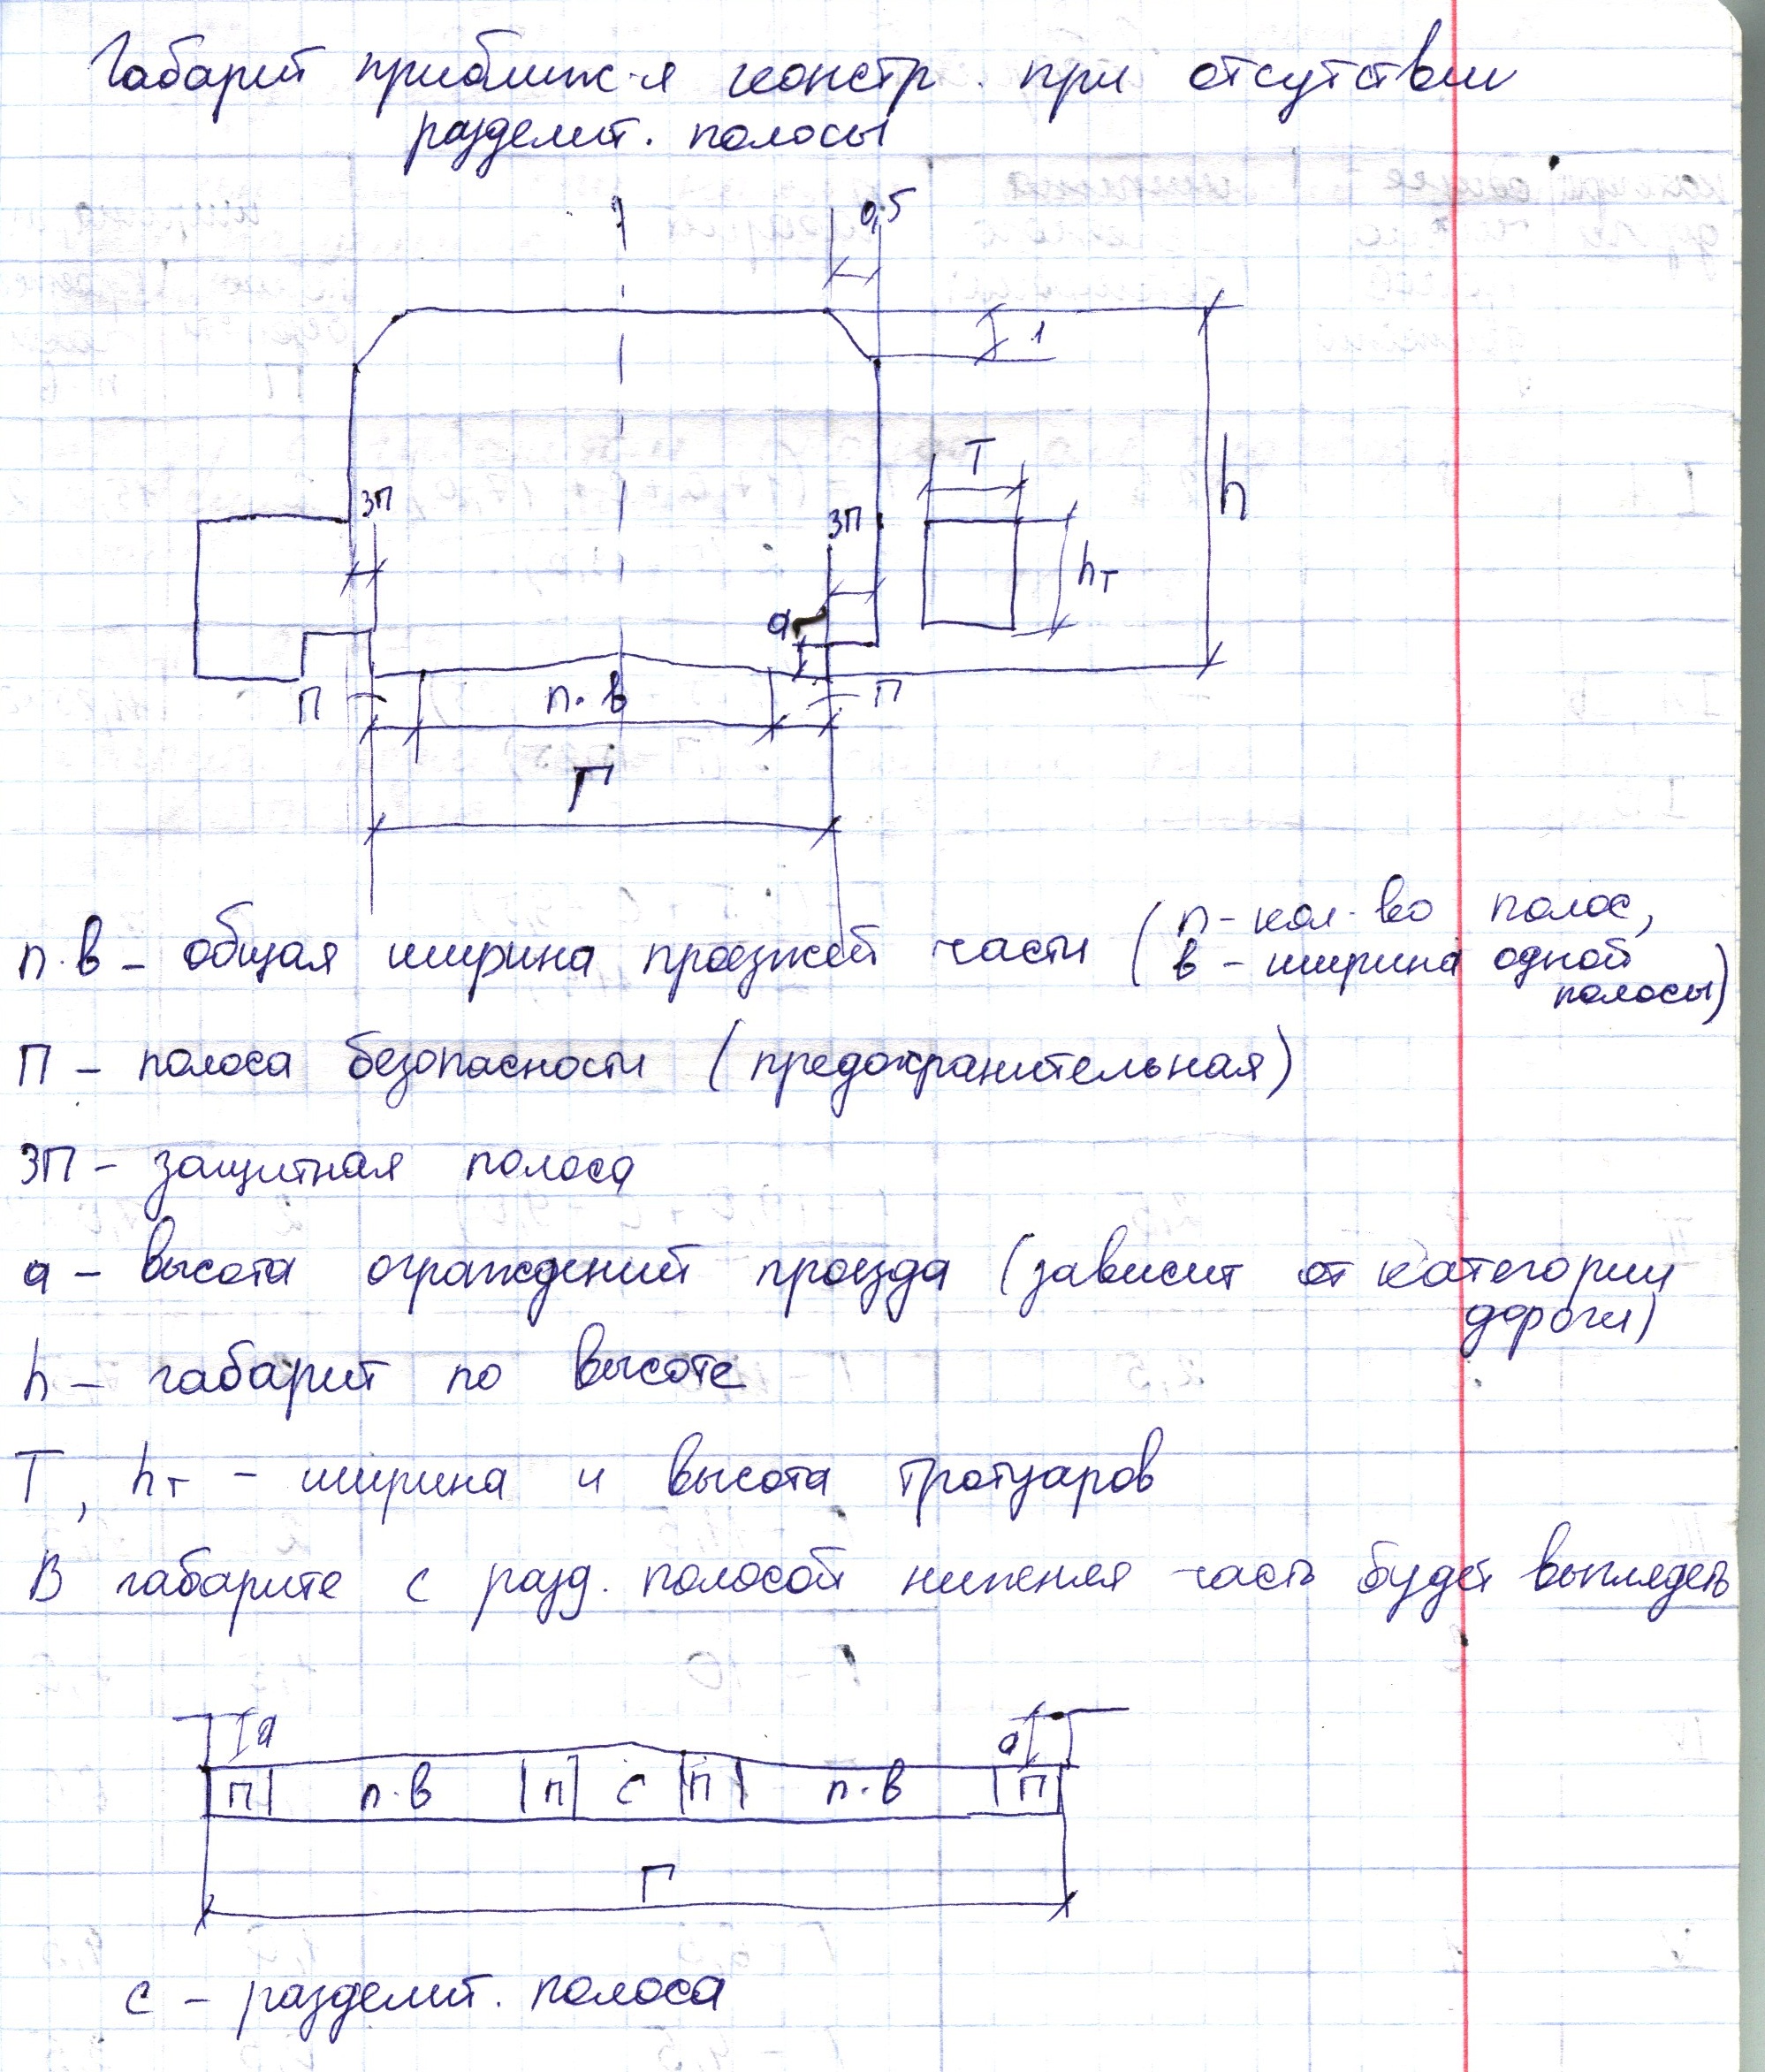 Габарит приближ-я констр. при отсутствии
разделит. полосы
0,5
1
T
h
ЗП
ЗП
hт
a
П
n·в
П
Г
n·в – общая ширина проезжей части (n - кол-во полос,
в – ширина одной
полосы)
П – полоса безопасности (предохранительная)
ЗП – защитная полоса
a – высота ограждений проезда (зависит от категории
дороги)
h – габарит по высоте
T, hт – ширина и высота тротуаров
В габарите с разд. полосой нижняя часть будет выглядеть
a
a
П
n·в
П
с
П
n·в
П
Г
с – разделит. полоса